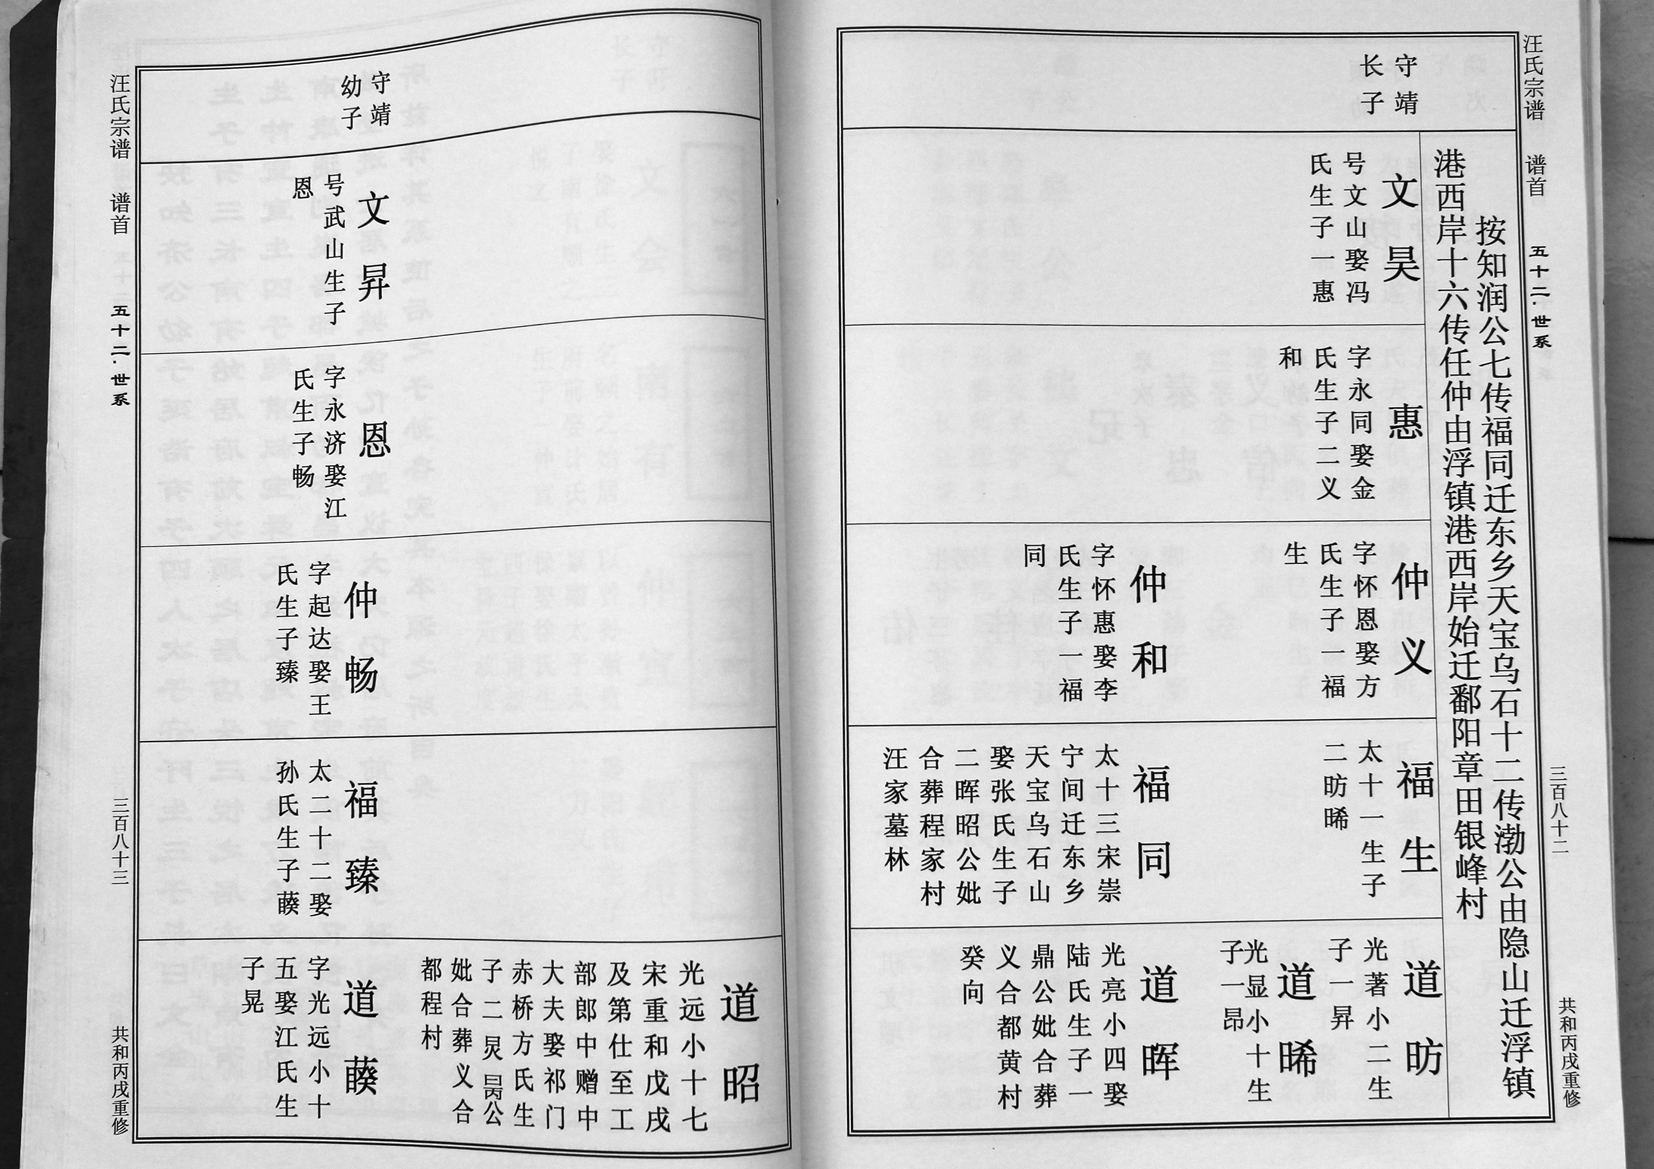 汪氏宗谱
谱首
五十二·世系
三百八十二
共和丙戌重修
按知润公七传福同迁东乡天宝乌石十二传渤公由隐山迁浮镇
港西岸十六传任仲由浮镇港西岸始迁鄱阳章田银峰村
守靖
长子
文昊
号文山娶冯
氏生子一惠
文惠
字永同娶金
氏生子二义
和
仲义
字怀恩娶方
氏生子一福
生
仲和
字怀惠娶李
氏生子一福
同
福生
太十一生子
二昉晞
福同
太十三宋崇
宁间迁东乡
天宝乌石山
娶张氏生子
二晖昭公妣
合葬程家村
汪家墓林
道昉
光著小二生
子一昇
道晞
光显小十生
子一昂
道晖
光亮小四娶
陆氏生子一
鼎公妣合葬
义合都黄村
癸向
守靖
幼子
文昇
号武山生子
恩
文恩
字永济娶江
氏生子畅
仲畅
字起达娶王
氏生子臻
福臻
太二十二娶
孙氏生子
道昭
光远小十七
宋重和戊戌
及第仕至工
部郎中赠中
大夫娶祁门
赤桥方氏生
子二炅昺公
妣合葬义合
都程村
道
字光远小十
五娶江氏生
子晃
汪氏宗谱
谱首
五十二·世系
三百八十三
共和丙戌重修